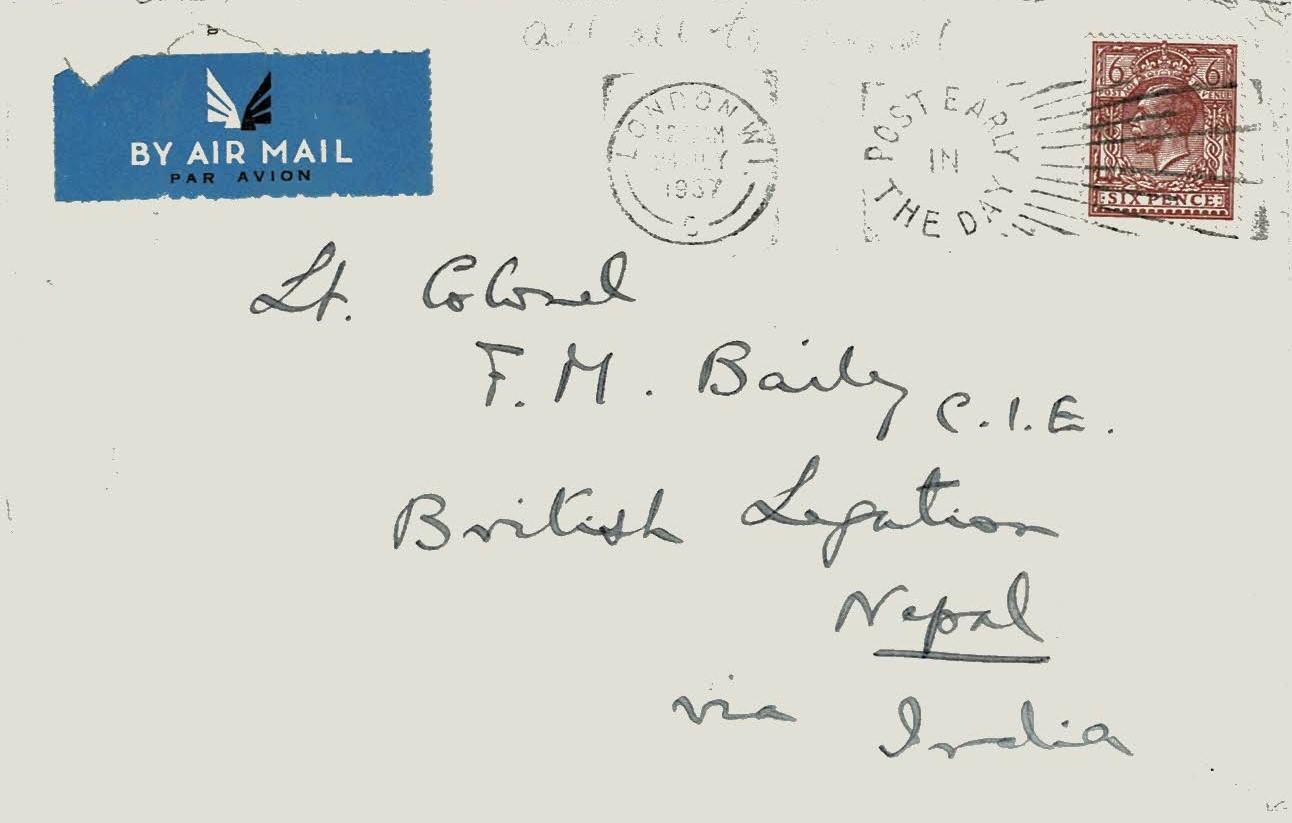 BY AIR MAIL
PAR AVION
LONDON W1.
1937
POST EARLY
IN
THE DAY
6 6
SIX PENCE
Lt. Colonel
F. M. Baily C.I.E.
British Legation
Nepal
via India